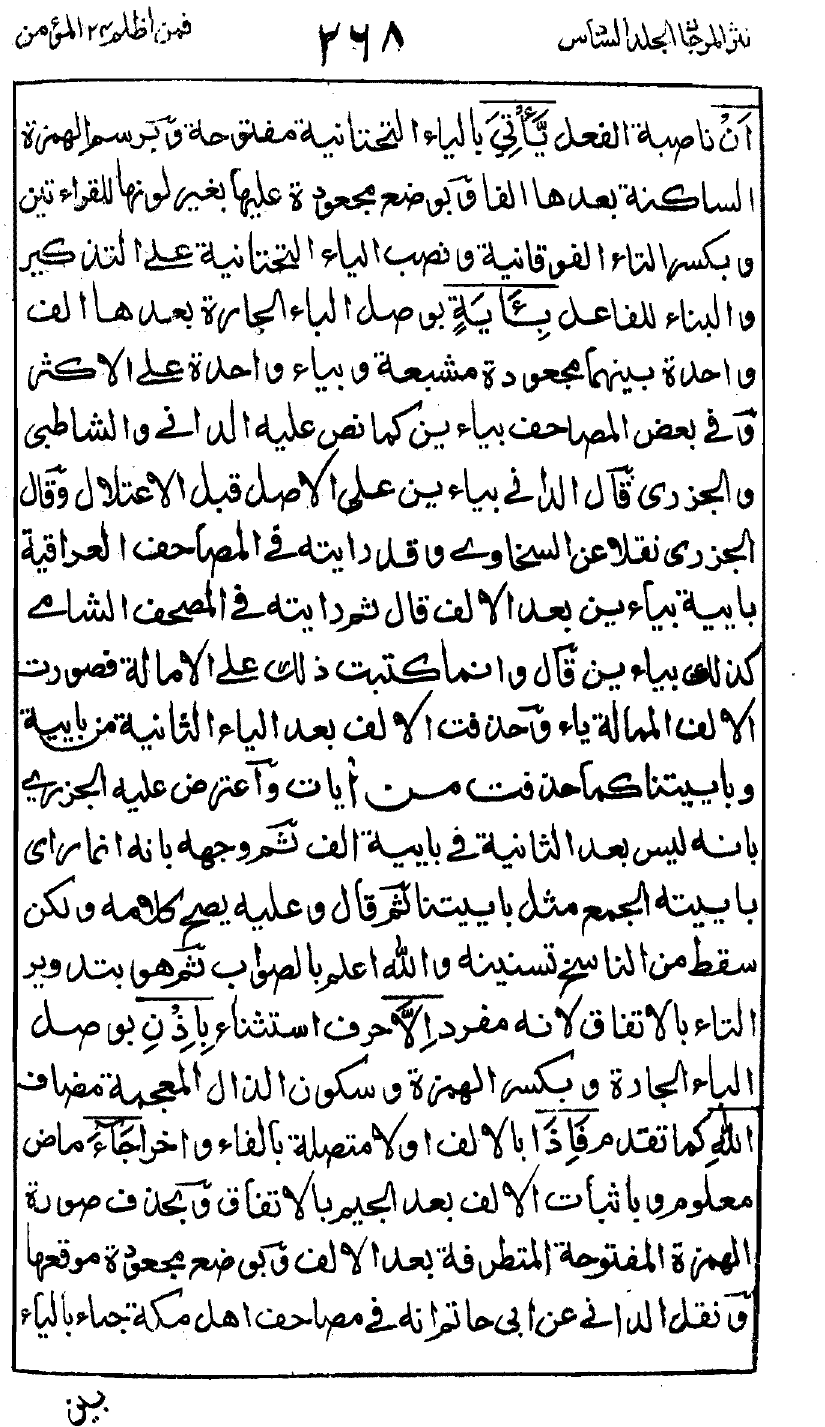 نثر المرجان الجلد السادس ٣٦٨ فمن اظلم ٢٤ المؤمن
اَنْ ناصبة الفعل يَّأْتِيَ بالياء التحتانية مفتوحة وَبرسم الهمزة
الساكنة بعدها الفا وَبوضع مجعودة عليها بغير لونها للقراءتين
وبكسر التاء الفوقانية ونصب الياء التحتانية على التذكير
والبناء للفاعل بِـَٔايَةٍ بوصل الباء الجارة بعدها الف
واحدة بينهما مجعودة مشبعة وبياء واحدة على الاكثر
وَفي بعض المصاحف بياءين كما نص عليه الداني والشاطبى
والجزرى قَال الداني بياءين على الاصل قبل الاعتلال وَقال
الجزرى نقلا عن السخاوي وقد رايته في المصاحف العراقية
باييية بياءين بعد الالف قال ثم رايته في المصحف الشامي
كذلك بياءين قَال وانما كتبت ذلك على الامالة فصورت
الالف الممالة ياء وَحذفت الالف بعد الياء الثانية من بايية
وباييتنا كما حذفت من أيات وَاعترض عليه الجزري
بانه ليس بعد الثانية في بايية الف ثَم وجهه بانه انما راى
باييته الجمع مثل باييتنا ثَم قال وعليه يصح كلامه ولكن
سقط من الناسخ تسنينه والله اعلم بالصواب ثَم هو بتدوير
التاء بالاتفاق لانه مفرد اِلَّا حرف استثناء بِاِذْنِ بوصل
الباء الجارة وبكسر الهمزة وسكون الذال المعجمة مضاف
اللهِ كما تقدم فَاِذَا بالالف اولا متصلة بالفاء واخرا جَآءَ ماض
معلوم وباثبات الالف بعد الجيم بالاتفاق وَبحذف صورة
الهمزة المفتوحة المتطرفة بعد الالف وَبوضع مجعودة موقعها
وَنقل الداني عن ابى حاتم انه في مصاحف اهل مكة جياء بالياء
بين